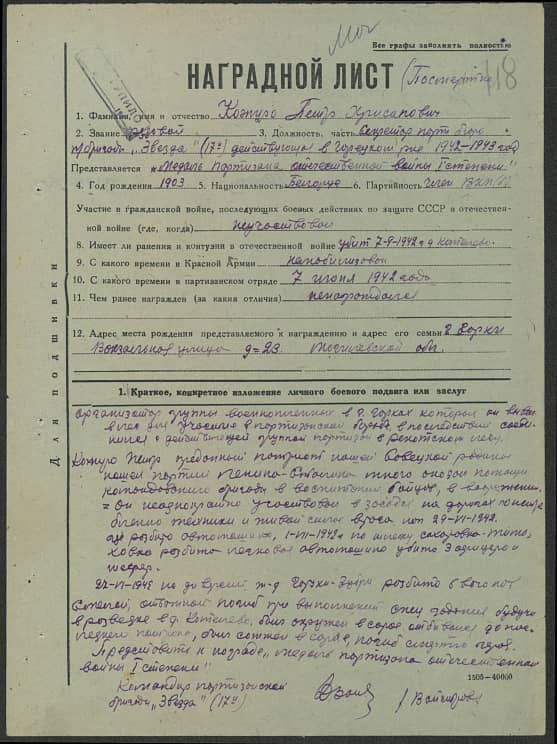 Все графы заполнять полностью
118
НАГРАДНОЙ ЛИСТ (Посмертно)
1. Фамилия, имя и отчество Кожуро Петр Хрисапович
2. Звание рядовой 3. Должность, часть Секретарь парт бюро
п/бригады „Звезда" (17ой) действующая в Горецком р-не 1942-1943 год
Представляется к „Медаль Партизана отечественной войны I степени"
4. Год рождения 1903 5. Национальность Белорус 6. Партийность Член ВКП(б)
Участие в гражданской войне, последующих боевых действиях по защите СССР и отечествен-
ной войне (где, когда) неучаствовал
8. Имеет ли ранения и контузии в отечественной войне убит 7-9-1942 г д Котелево
9. С какого времени в Красной Армии немобилизован
10. С какого времени в партизанском отряде 7 июня 1942 года
11. Чем ранее награжден (за какия отличия) ненаграждался
12. Адрес места рождения представляемого к награждению и адрес его семьи г Горки
Вокзальная улица д-23. Могилевской обл.
Для подшивки
1. Краткое, конкретное изложение личного боевого подвига или заслуг
Организатор группы военнопленных в г. Горках которых он вывел
в лес для участия в партизанской борьбе, в последствии соеди-
нился с действующей группой партизан в лесу.
Кожуро Петр преданный патриот нашей Советской родины
нашей партии Ленина-Сталина много оказал помощи
командованию бригады в воспитании бойцов,
Он неоднократно участвовал в засадах на дорогах по истре
блению техники и живой силы врага 29-VI-1942.
разбито автомашин, 1-VII-1942 г по
разбита легковая автомашина убито 3 офицера и
шофер.
на ж-д Горки- разбито 6 вагонов
погиб при выполнении задания будучи
в разведке в д. Котелево, был окружен в сарае отбивался до пос-
леднего патрона, был сожжен в сарае, погиб смертью героя.
Представить к награде „медаль партизана отечественной
войны I степени"
1505—40000
Командир партизанской
бригады „Звезда" (17ой)